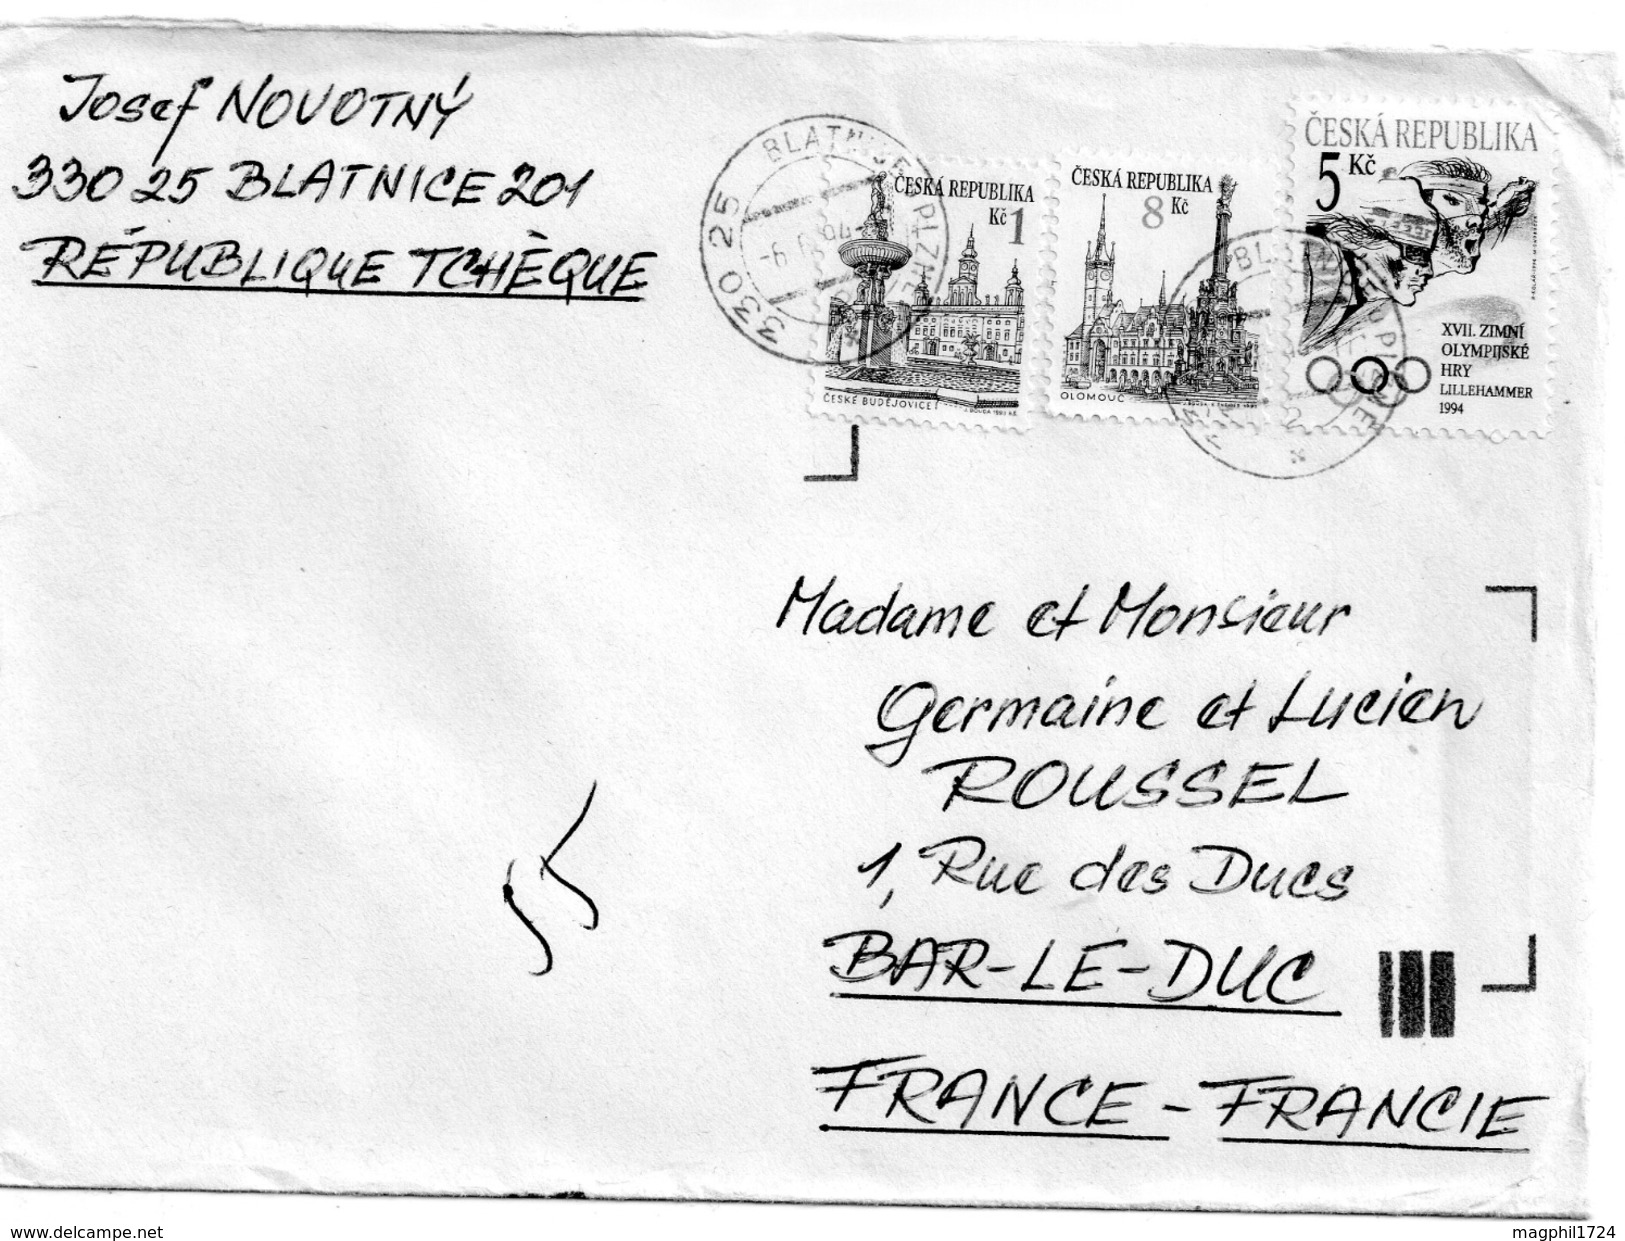 Josef NOVOTNÝ
330 25 BLATNICE 201
RÉPUBLIQUE TCHÈQUE
330 25 BLATNICE U PLZNĚ
-6.
94
ČESKÁ REPUBLIKA
Kč 1
ČESKÉ BUDĚJOVICE
ČESKÁ REPUBLIKA
8 Kč
OLOMOUC
ČESKÁ REPUBLIKA
5 Kč
XVII. ZIMNÍ
OLYMPIJSKÉ
HRY
LILLEHAMMER
1994
Madame et Monsieur
Germaine et Lucien
ROUSSEL
1, Rue des Ducs
BAR-LE-DUC
FRANCE - FRANCIE
www.delcampe.net
magphil1724